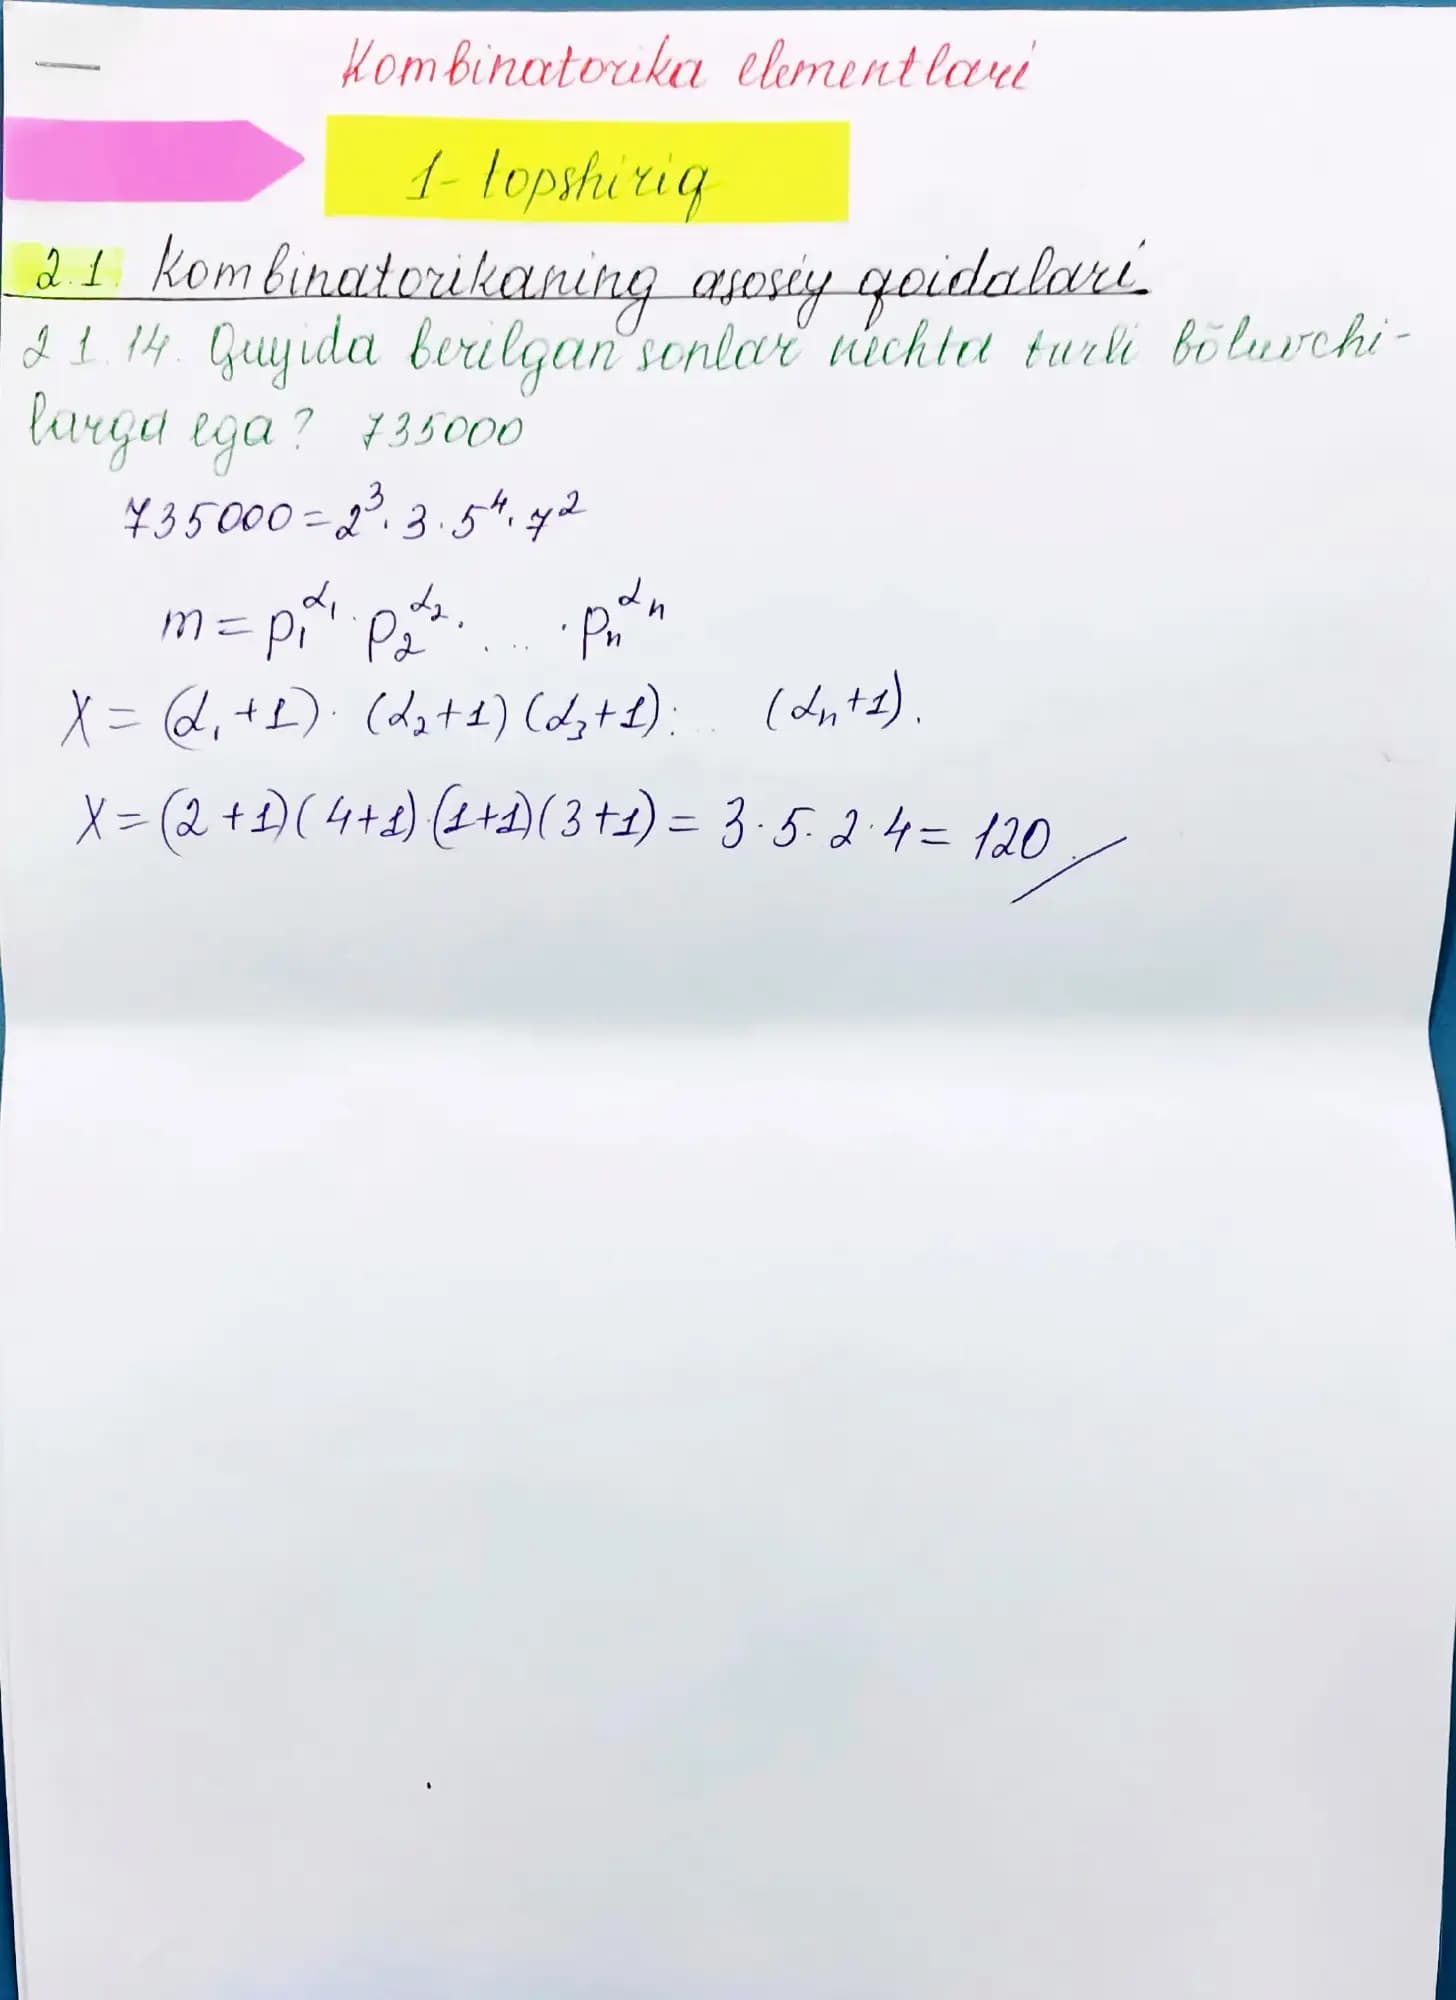 Kombinatorika elementlari
1- topshiriq
2.1. Kombinatorikaning asosiy qoidalari.
2.1.14. Quyida berilgan sonlar nechta turli bōluvchi-
larga ega? 735000
735000 = 2³ · 3 · 5⁴ · 7²
m = p₁^α₁ · p₂^α₂ · ... · pₙ^αₙ
X = (α₁+1) · (α₂+1) (α₃+1) · ... (αₙ+1).
X = (2+1)(4+1)·(1+1)(3+1) = 3 · 5 · 2 · 4 = 120